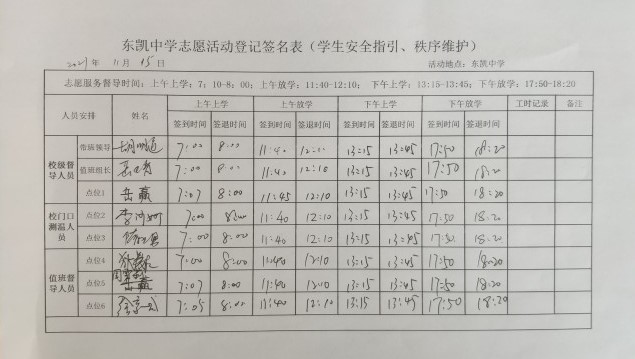 东凯中学志愿活动登记签名表（学生安全指引、秩序维护）
2021年 11月 15日 活动地点：东凯中学
志愿服务督导时间：上午上学：7：10-8：00；上午放学：11:40-12:10； 下午上学：13:15-13:45；下午放学：17:50-18:20
人员安排 姓名 上午上学 上午放学 下午上学 下午放学 工时记录 备注
签到时间 签退时间 签到时间 签退时间 签到时间 签退时间 签到时间 签退时间
校级督导人员 带班领导 7:00 8:00 11:40 12:10 13:15 13:45 17:50 18:20
值班组长 7:00 8:00 11:40 12:10 13:15 13:45 17:50 18:20
点位1 岳赢 7:07 8:00 11:45 12:10 13:15 13:45 17:50 18:20
校门口测温人员 点位2 7:00 8:00 11:40 12:10 13:15 13:45 17:50 18:20
点位3 7:00 8:00 11:40 12:10 13:15 13:45 17:50 18:20
值班督导人员 点位4 7:00 8:00 11:40 12:10 13:15 13:45 17:50 18:20
点位5 岳赢 7:07 8:00 11:40 12:10 13:15 13:45 17:50 18:20
点位6 7:05 8:00 11:40 12:10 13:15 13:45 17:50 18:20